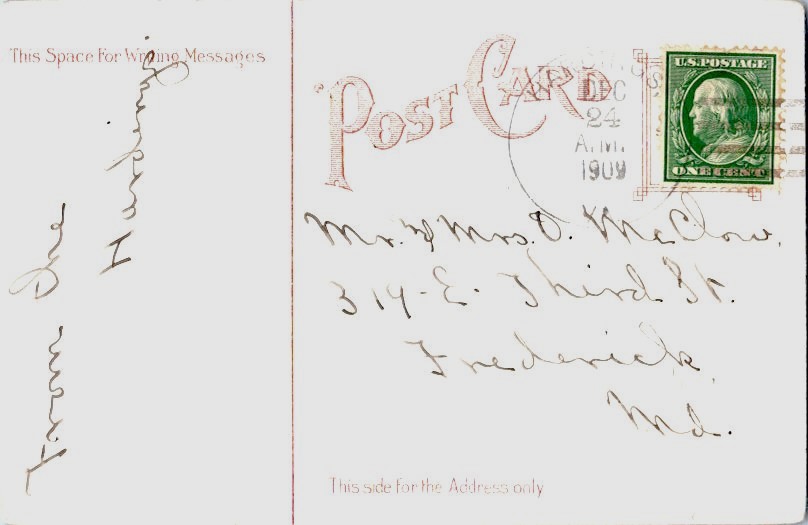 This Space For Writing Messages
From The
Hardings
POST CARD
DEC
24
A.M.
1909
U.S. POSTAGE
ONE CENT
Mr. & Mrs. O. McClow.
319 - E. Third St.
Frederick,
Md.
This side for the Address only